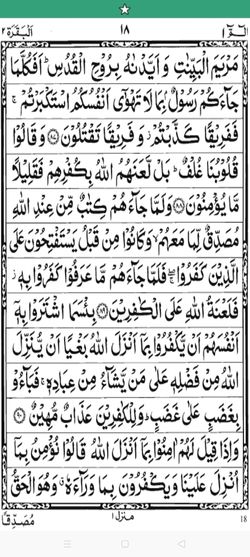 الٓمّٓ ١ ١٨ البقرة ٢
مَرْيَمَ الْبَيِّنٰتِ وَاَيَّدْنٰهُ بِرُوْحِ الْقُدُسِ ؕ اَفَكُلَّمَا
جَآءَكُمْ رَسُوْلٌۢ بِمَا لَا تَهْوٰٓى اَنْفُسُكُمُ اسْتَكْبَرْتُمْ ۚ
فَفَرِيْقًا كَذَّبْتُمْ ؗ وَفَرِيْقًا تَقْتُلُوْنَ ﴿۸۷﴾ وَقَالُوْا
قُلُوْبُنَا غُلْفٌ ؕ بَلْ لَّعَنَهُمُ اللّٰهُ بِكُفْرِهِمْ فَقَلِيْلًا
مَّا يُؤْمِنُوْنَ ﴿۸۸﴾ وَلَمَّا جَآءَهُمْ كِتٰبٌ مِّنْ عِنْدِ اللّٰهِ
مُصَدِّقٌ لِّمَا مَعَهُمْ ۙ وَكَانُوْا مِنْ قَبْلُ يَسْتَفْتِحُوْنَ عَلَى
الَّذِيْنَ كَفَرُوْا ۖۚ فَلَمَّا جَآءَهُمْ مَّا عَرَفُوْا كَفَرُوْا بِهٖ ؗ
فَلَعْنَةُ اللّٰهِ عَلَى الْكٰفِرِيْنَ ﴿۸۹﴾ بِئْسَمَا اشْتَرَوْا بِهٖٓ
اَنْفُسَهُمْ اَنْ يَّكْفُرُوْا بِمَآ اَنْزَلَ اللّٰهُ بَغْيًا اَنْ يُّنَزِّلَ
اللّٰهُ مِنْ فَضْلِهٖ عَلٰى مَنْ يَّشَآءُ مِنْ عِبَادِهٖ ۚ فَبَآءُوْ
بِغَضَبٍ عَلٰى غَضَبٍ ؕ وَلِلْكٰفِرِيْنَ عَذَابٌ مُّهِيْنٌ ﴿۹۰﴾
وَاِذَا قِيْلَ لَهُمْ اٰمِنُوْا بِمَآ اَنْزَلَ اللّٰهُ قَالُوْا نُؤْمِنُ بِمَآ
اُنْزِلَ عَلَيْنَا وَيَكْفُرُوْنَ بِمَا وَرَآءَهٗ ۗ وَهُوَ الْحَقُّ
منزل ١ مُصَدِّقًا
18